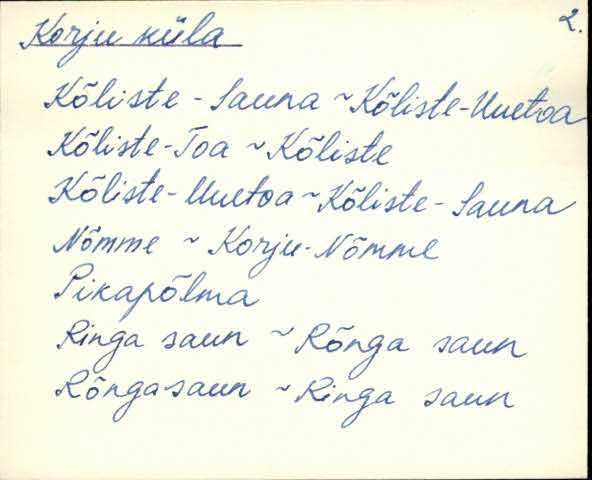 2.
Korju küla
Kõliste - Sauna ~ Kõliste-Uuetoa
Kõliste-Toa ~ Kõliste
Kõliste-Uuetoa ~ Kõliste-Sauna
Nõmme ~ Korju-Nõmme
Pikapõlma
Ringa saun ~ Rõnga saun
Rõnga saun ~ Ringa saun